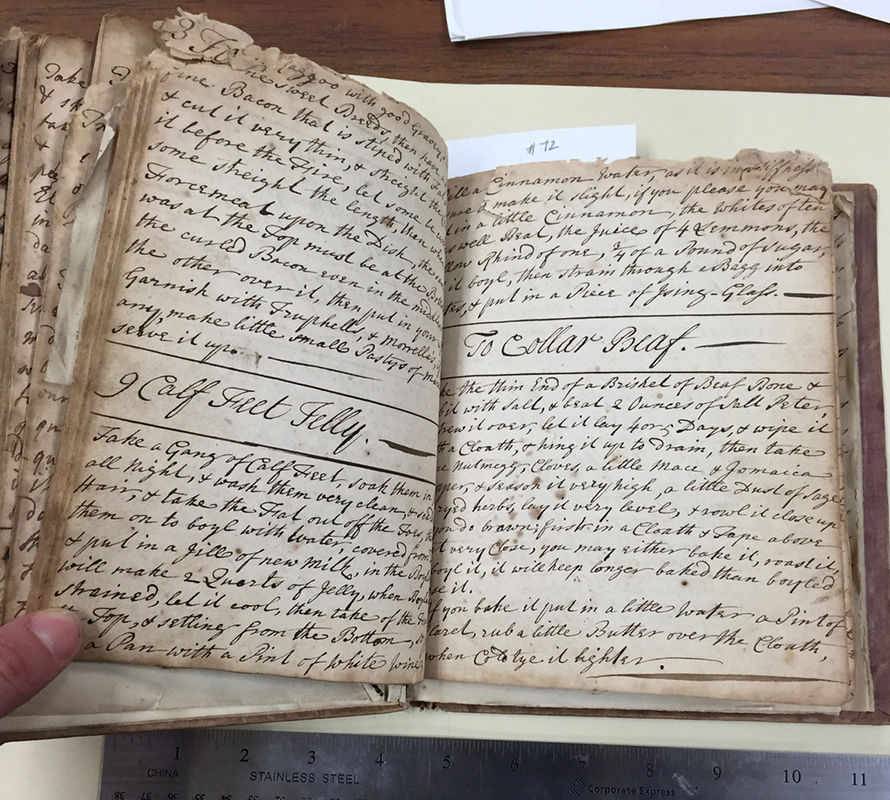 Raggoo with good Gravy,
sweet Breeds, then have
fine Bacon that is stined with
& cut it very thin, & streight
it before the Fire, let some be
some streight the length, then
Forcemeat upon the Dish, then
was at the Top must be at the
the curled Bacon even in the midd
the other over it, then put in your
Garnish with Truphells, & morells
any, make little small Pastys of
serve it up.
9 Calf Feet Jelly.
Take a Gang of Calf Feet, soak them in
all Night, & wash them very clean, &
Hair, & take the Fat out of the Toes,
them on to boyl with water, covered
& put in a Jill of new Milk, in the Boyl
will make 2 Quarts of Jelly, when
strained, let it cool, then take of the
Top, & setling from the Bottom,
a Pan with a Pint of white wine
#72
a Cinnamon Water, as it is
make it slight, if you please you may
in a little Cinnamon, the Whites of ten
well Beat, the Juice of 4 Lemmons, the
Rhind of one, 3/4 of a Pound of Sugar,
it boyl, then strain through a Bagg into
& put in a Piece of Ising-Glass.
To Collar Beaf.
the thin End of a Brisket of Beaf Bone &
it with Salt, & beat 2 Ounces of Salt Peter,
it over, let it lay 4 or 5 Days, & wipe it
a Cloath, & hing it up to drain, then take
Nutmegs, Cloves, a little Mace & Jamaica
& season it very high, a little Dust of Sage
herbs, lay it very level, & rowl it close up
you do brawn; first in a Cloath & Tape above
very Close, you may either bake it, roast it,
boyl it, it will keep longer baked than boyled
it.
you bake it put in a little Water a Pint of
rub a little Butter over the Cloath,
when Cold tye it tighter.
Take
&
1 2 3 4 5 6 7 8 9 10 11
CHINA STAINLESS STEEL Corporate Express